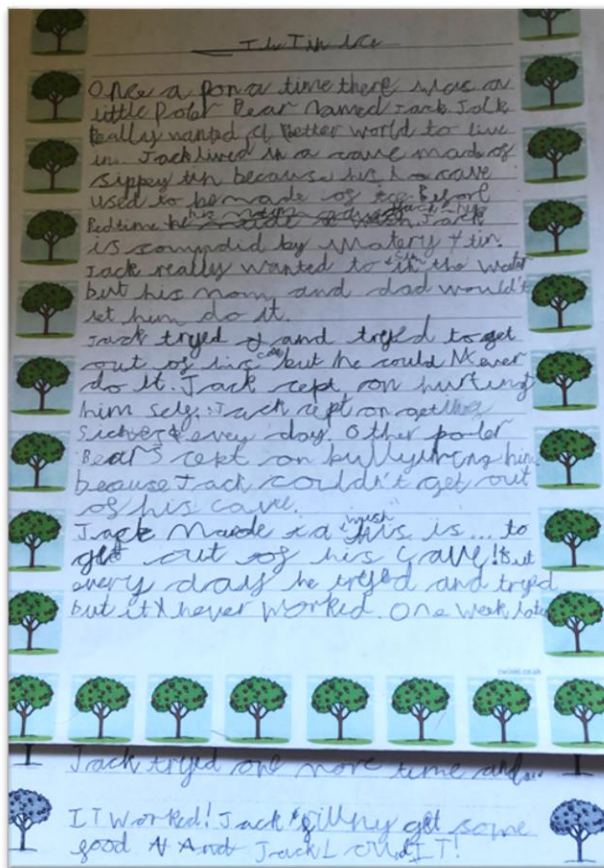 Once a pon a time there was a
little Poler Bear named Jack. Jack
Really wanted a Better world to live
in. Jack lived in a cave made of
sippey tin because his cave
used to be made of ice. Before
Bedtime Jack
is by watery tin.
Jack really wanted to in the water
but his mom and dad wouldn't
let him do it.
Jack tryed and tryed to get
out of his cave but he could Never
do it. Jack cept on hurting
him self. Jack cept on geting
every day. Other poler
Bears cept on him
because Jack couldn't get out
of his cave.
Jack Made a wish this is... to
get out of his cave! But
every day he tryed and tryed
but it never worked. One week later
twinkl.co.uk
Jack tryed one more time and...
IT Worked! Jack get some
good And Jack IT!